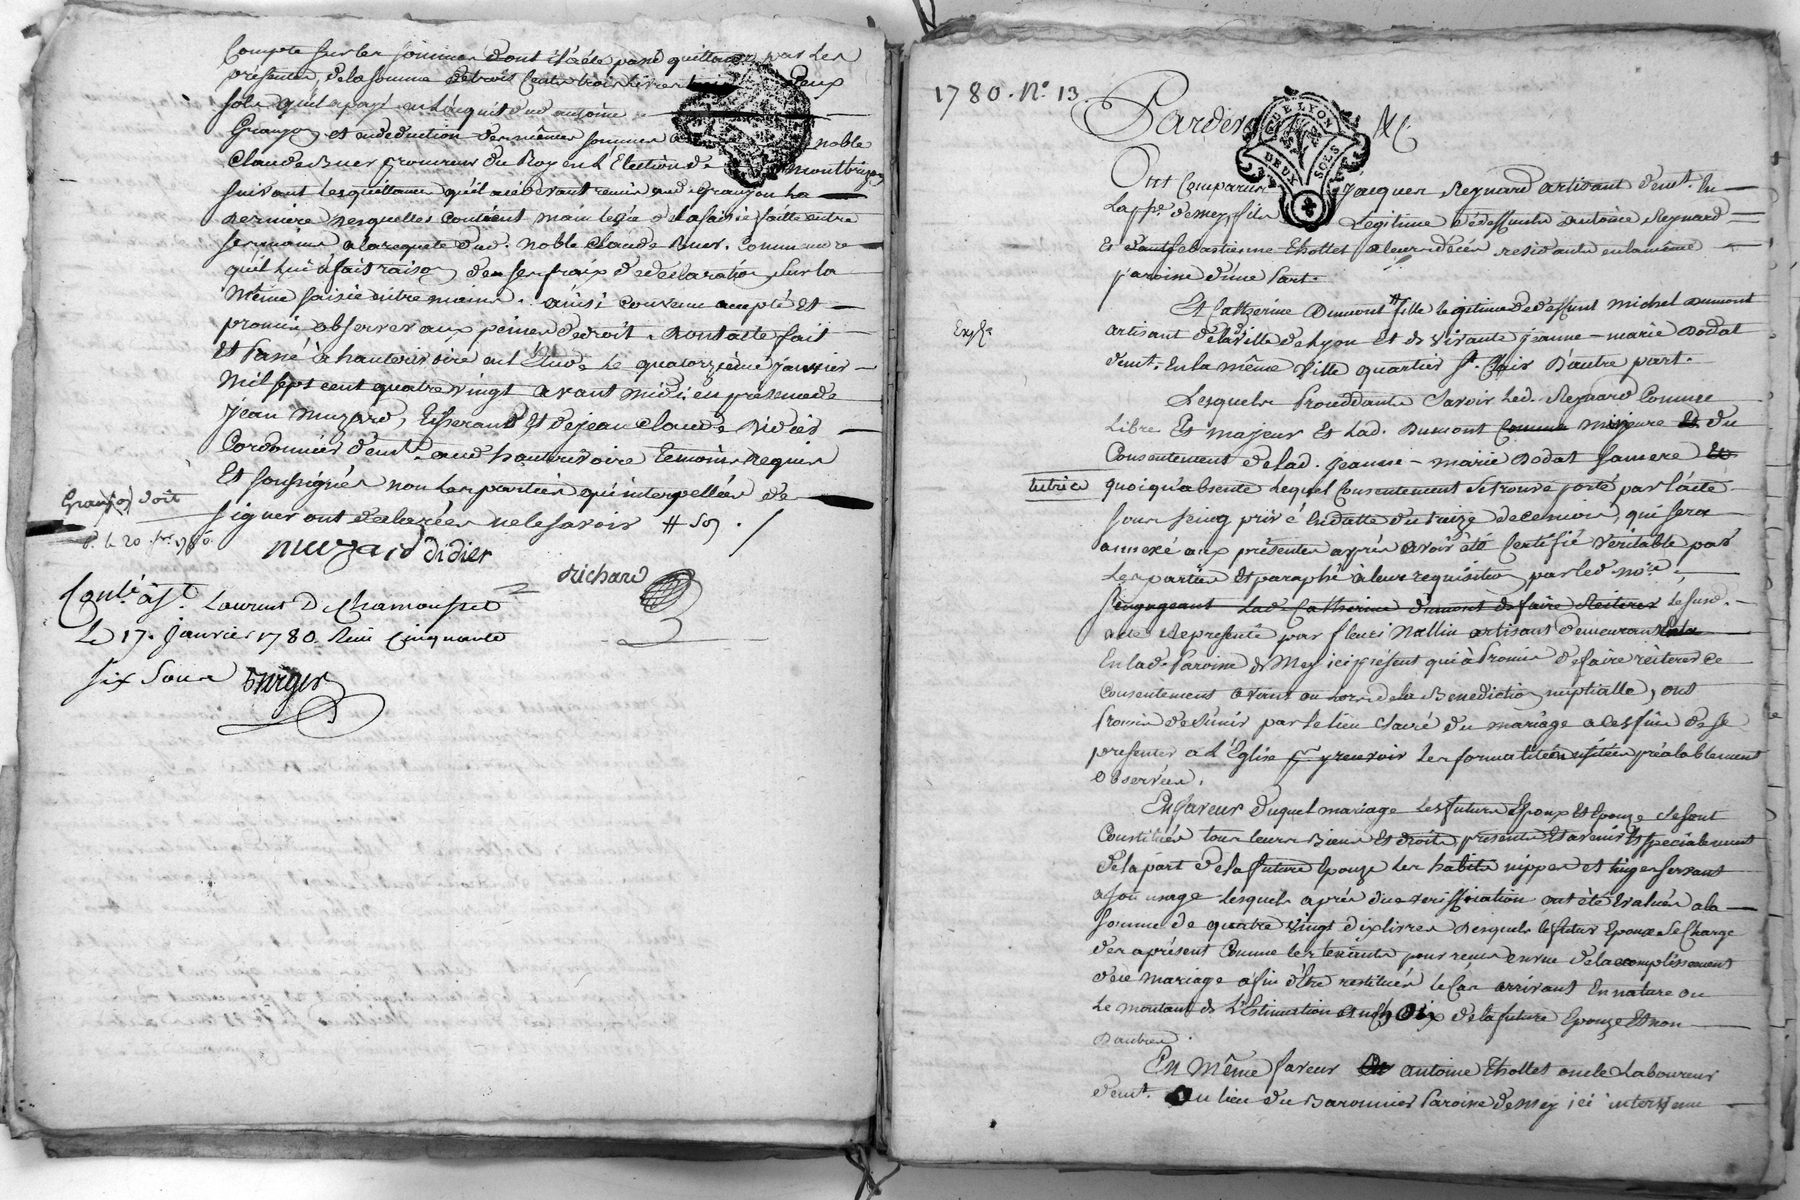 Compte sur les sommes dont il a été passé quittance par les
présentes, de la somme de trois cents trois livres deux
sols qu'il a payé en l'acquit dud. antoine
Granjon et en deduction des mêmes sommes a noble
Claude Buer procureur du Roy en l'Election de montbrizon
suivant les quittances qu'il a cidevant remis aud. Granjon la
derniere desquelles contient main levée de la saisie faitte entre
ses mains a la requete dud. noble Claude Buer. Comme encore
qu'il lui a fait raison de ses fraix de declaration sur la
même saisie entre mains. ainsi convenu accepté et
promis observer aux peines de droit. dont acte fait
et passé à hauterivoire en l'Etude le quatorzieme janvier
mil sept cent quatre vingt avant midi en présence de
jean muzard, tisserand et de jean Claude Didier
Cordonnier demt. aud. hauterivoire temoins requis
et soussignés non les parties qui interpellées de
signer ont déclarées ne le savoir
Granjon doit
muzard didier
richard
Conlé. à St. Laurent D Chamousset
Le 17. janvier 1780. Reçu Cinquante
six sous
1780. N.o 13.
Pardevant
G. DE LYON
DEUX SOLS
Ont Comparus jacques Reynard artisant demt. En
la ppe. de mey, fils Legitime à deffunts antoine Reynard
Et Sebastienne Thollet a leur décés residants en la même
paroisse d'une part.
Et Catherine Dumont fille legitime de deffunt michel Dumont
artisant de la ville de Lyon Et de vivante jeanne-marie Dodat
demt. En la même ville quartier St. Clair D'autre part.
Lesquels Procédants savoir led. Reynard Comme
Libre Et majeur Et lad. Dumont comme mineure Et du
Consentement de lad. jeanne-marie Dodat sa mere Et
tutrice quoiqu'absente lequel Consentement se trouve porté par l'acte
sous seing privé En datte du treize decembre, qui sera
annexé aux présentes après avoir été Certifié véritable par
les parties Et paraphé à leur requisition par led. nore.,
s'engageant Lad. Catherine dumont de faire Reiterer le susd.
acte Representé par fleuri Nallin artisant demeurant
En lad. Paroisse de Mey ici présent qui à Promis de faire réiterer ce
Consentement avant ou lors de la Benediction nuptialle, ont
Promis de s'unir par le lien sacré du mariage a ces fins de se
presenter a l'Eglise pr. y recevoir les formalitées usitées préalablement
observées.
En faveur duquel mariage les futurs Epoux Et Epouze se sont
Constitués tous leurs Biens Et droits présents Et avenir Et specialement
de la part de la future Epouze les habits nippes et linges servant
a son usage lesquels après due verification ont été Evalués a la
somme de quatre vingt dix livres desquels le futur Epoux se Charge
des aprésent Comme les tenants pour reçus en vue de l'accomplissement
de ce mariage afin d'être restitués le Cas arrivant En nature ou
le montant de l'Estimation au choix de la future Epouze Et non
d'autres.
En même faveur antoine Thollet oncle Laboureur
demt. au lieu du Baronnier Paroisse de Mey ici intervenu